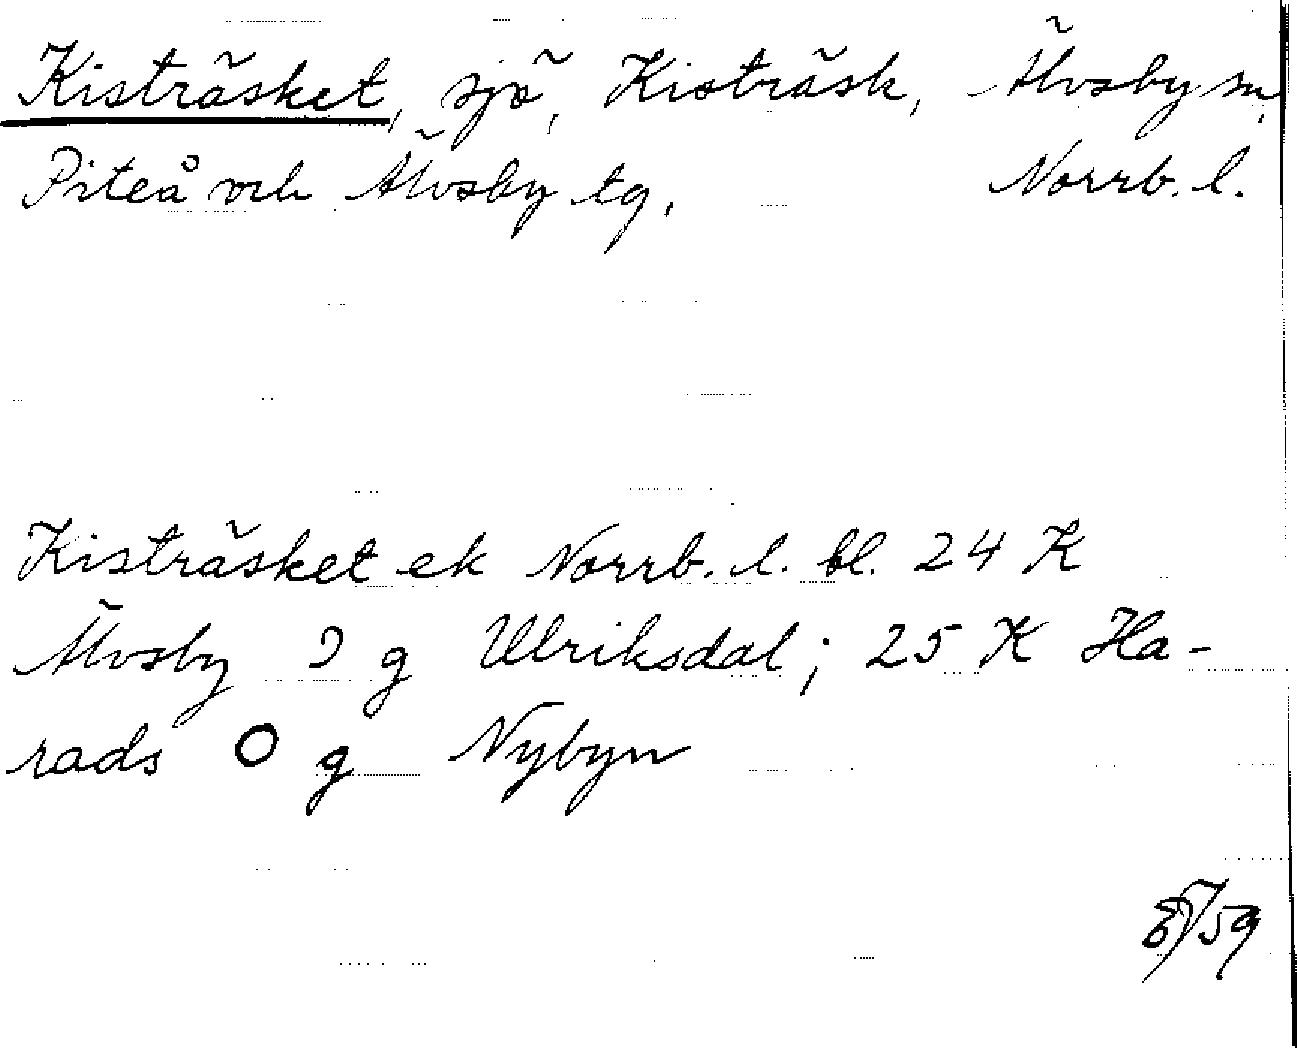 Kisträsket, sjö, Kisträsk, Älvsby sn,
Piteå och Älvsby tg, Norrb. l.
Kisträsket ek Norrb. l. bl. 24 K
Älvsby J g Ulriksdal; 25 K Ha-
rads O g Nybyn